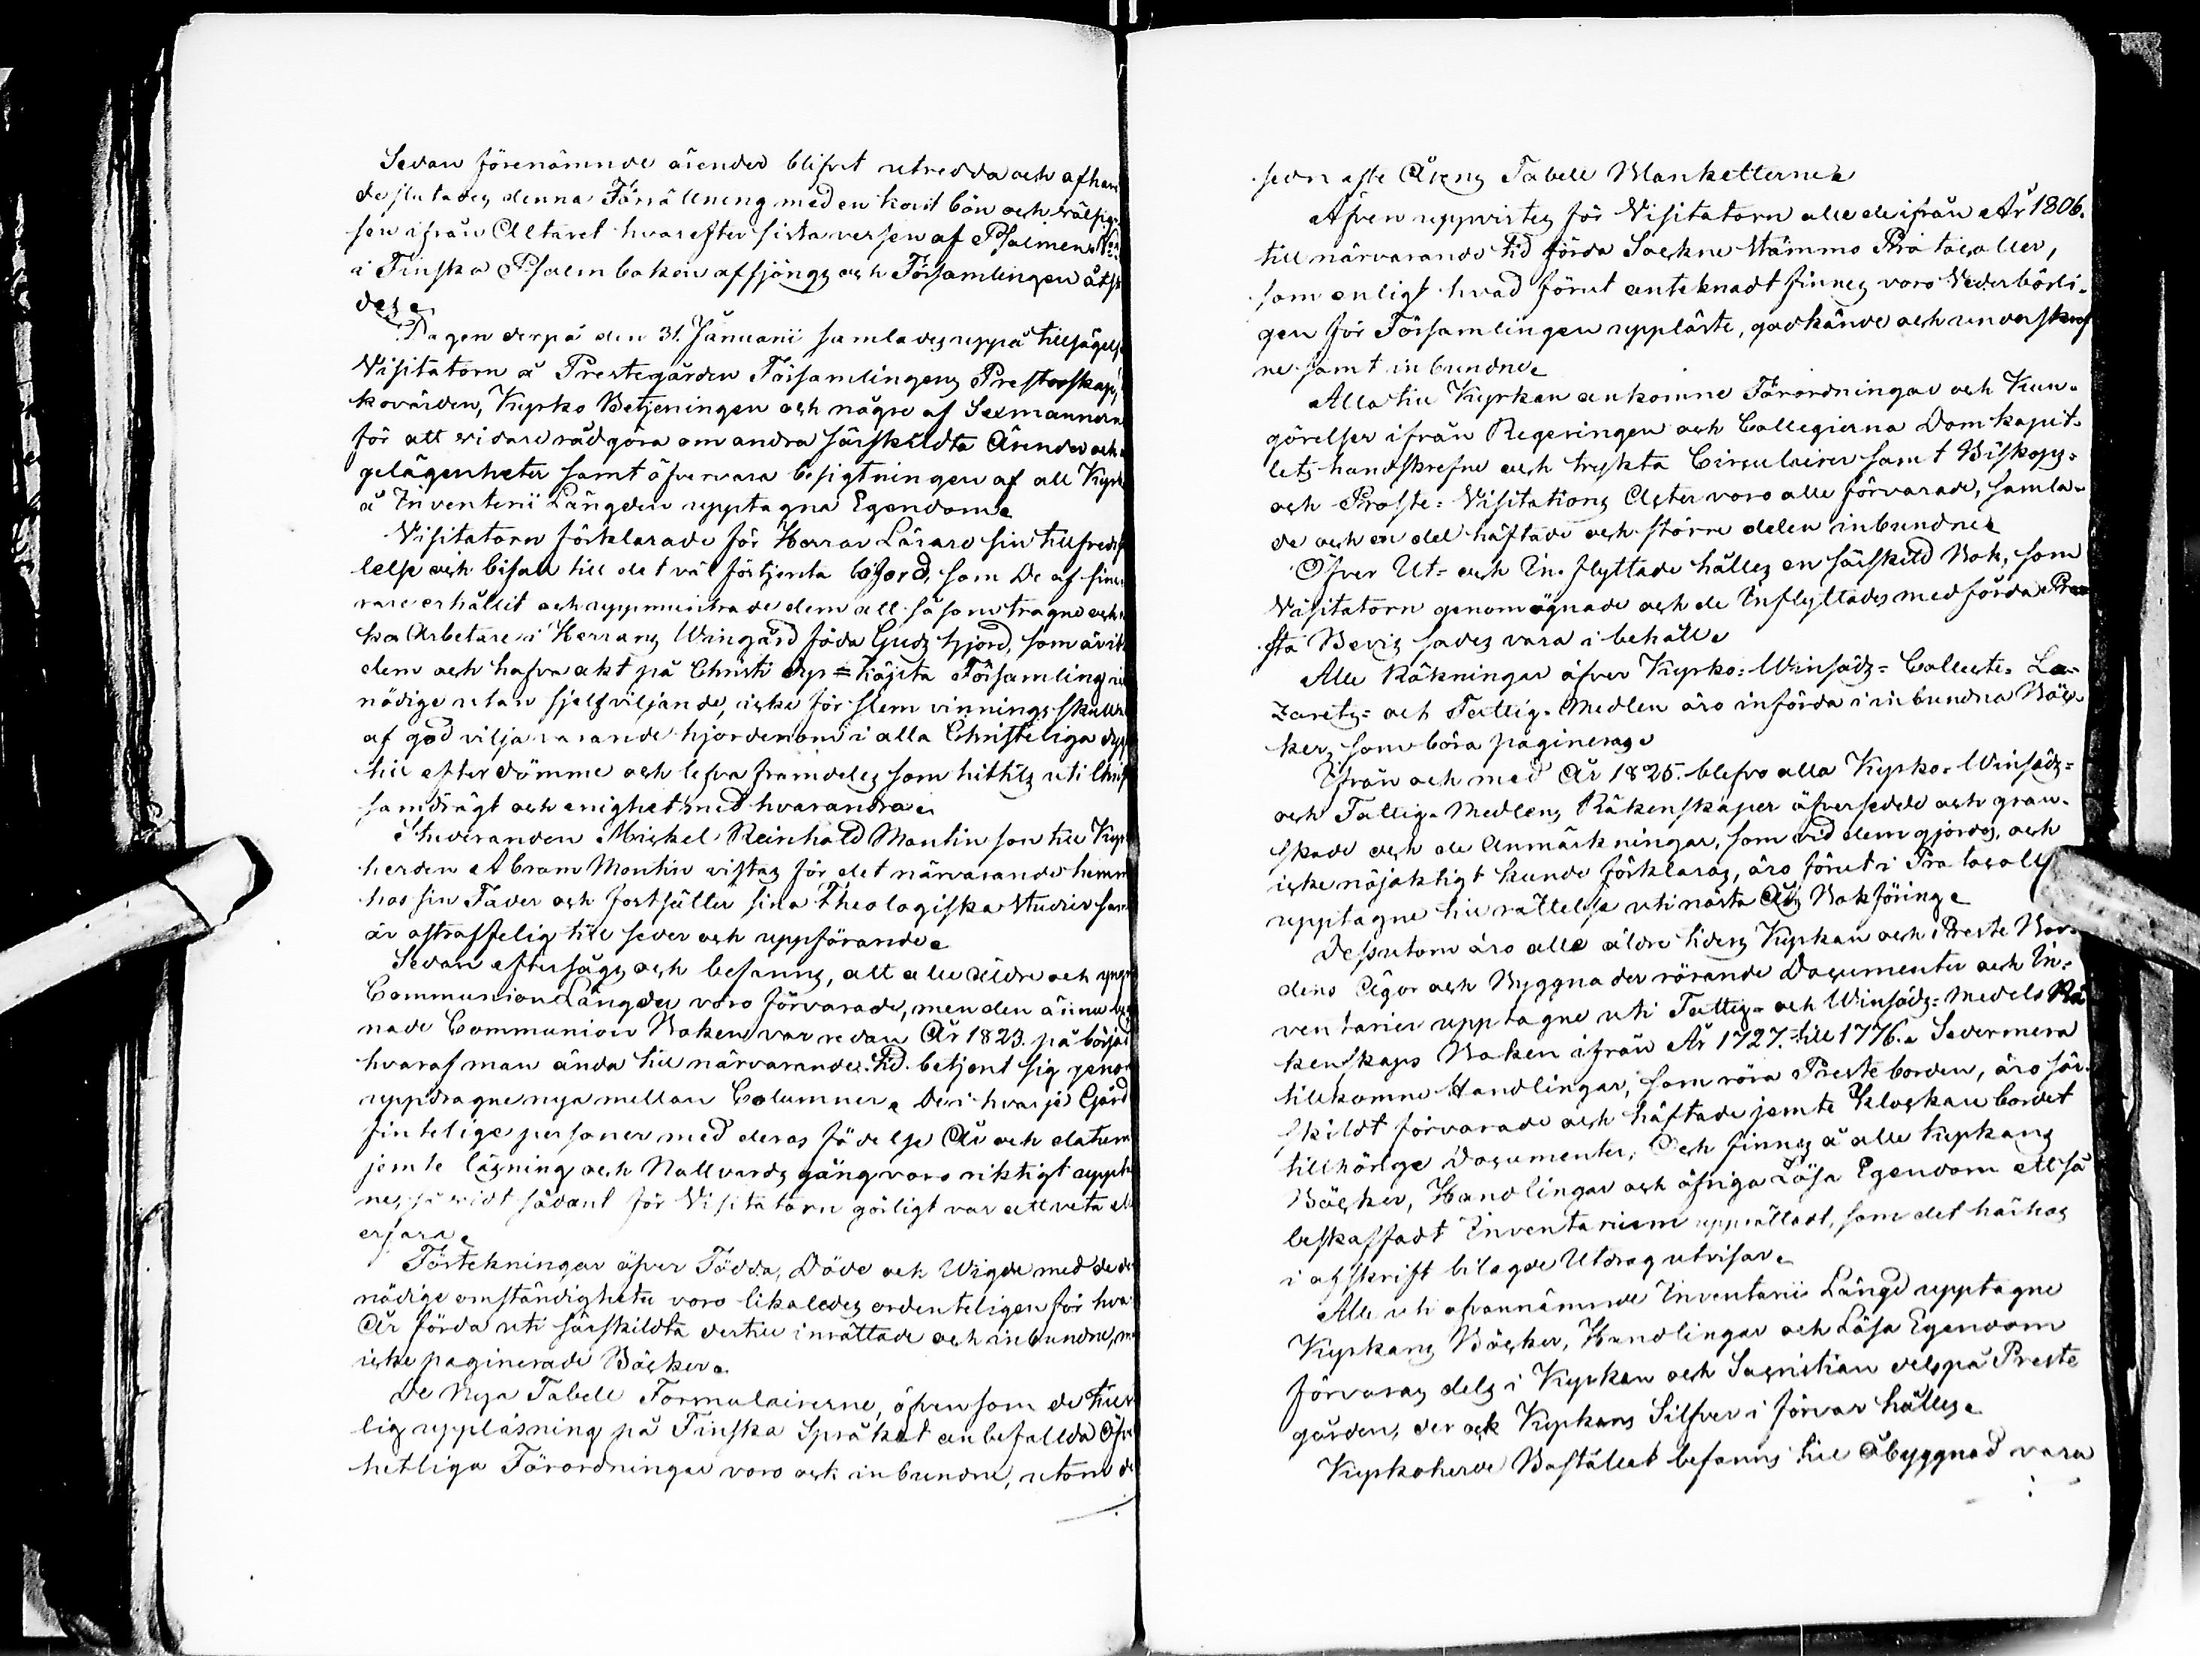 Sedan förenämnde ärender blifvit utredda och afhan
de slutades denna Förrättning med en kort bön och välsig=
sen ifrån Altaret hvarefter sista versen af Psalmen N:o
i Finska Psalmboken afsjöngs och Församlingen åtsk
des.
Dagen derpå den 31. Januarii samlades uppå tillsägelse
Visitatorn å Prestegården Församlingens Presterskap,
kovärden, Kyrko Betjeningen och någre af Sexmännerne
för att vidare rådgöra om andra särskildta Ärender och
gelägenheter samt öfvervara besigtningen af all Kyrk
å Inventarii Längden upptagna Egendom.
Visitatorn förklarade för Herrar Lärare sin tillfreds
lelse och bifall till det väl förtjenta loford, som De af sin
rare erhållit och uppmuntrade dem att såsom trogne och
ka Arbetare i Herrans Wingård föda Guds hjord, som är
dem och hafva akt på Christi dyr=köpta Församling ic
nödige utan sjelfviljande, icke för slem vinnings skull
af god vilja varande hjordenom i alla Christeliga dyg
till efterdömme och lefva framdeles som hittils uti Chris
samdrägt och enighet med hvarandra.
Studeranden Mickel Reinhold Montin son till Kyrk
herden Abram Montin vistas för det närvarande hemm
hos sin Fader och fortsätter sina Theologiska Studier sam
är ostraffelig till seder och uppförande.
Sedan eftersågs och befanns, att alla äldre och yng
Communion Längder voro förvarade, men den ännu beg
nade Communion Boken var redan År 1823. på börjad
hvaraf man ända till närvarande tid betjent sig genom
uppdragne nya mellan Columner. De i hvarje Gård
fintelige personer med deras födelse År och datum
jemte läsning och Nattvards gång voro riktigt uppt
ne, så vidt sådant för Visitatorn görligt var att veta el
erfara.
Förtekningar öfver Födda, Döde och Wigde med de der
nödige omständigheter voro likaledes ordenteligen för hva
År förda uti särskildta dertill inrättade och inbundne, me
icke paginerade Böcker.
De Nya Tabell Formulairerne, äfvensom de till
lig uppläsning på Finska Språket anbefallda Öfve
hetliga Förordningar voro ock inbundne, utom de
sednaste Årens Tabell Blanketterne.
Äfven uppvistes för Visitatorn alla de ifrån År 1806.
till närvarande tid förda Sockne Stämmo Protocoller,
som enligt hvad förut anteknadt finnes voro Vederbörli=
gen för Församlingen uppläste, godkände och underskref
ne samt inbundne.
Alla till Kyrkan ankomne Förordningar och Kun=
görelser ifrån Regeringen och Collegierna Domkapit=
lets handskrefne och tryckta Circulairer samt Biskops=
och Proste=Visitations Acter voro alla förvarade, samla=
de och en del häftade och större delen inbundne.
Öfver Ut= och In=flyttade hålles en särskild Bok, som
Visitatorn genomögnade och de Inflyttades medförda Pre
sta Bevis sades vara i behåll.
Alla Räkningar öfver Kyrko=Winsäds=Collecte=La=
zarets= och Fattig=Medlen äro införda i inbundna Böc=
ker, som böra pagineras.
Ifrån och med År 1825. blefvo alla Kyrko=Winsäds=
och Fattig=Medlens Räkenskaper öfversedde och gran=
skade och de Anmärkningar, som vid dem gjordes, och
icke nöjaktigt kunde förklaras, äro förut i Protocoll
upptagne till rättelse uti nästa Års Bokföring.
Dessutom äro alla äldre tiders Kyrkan och Preste Bor=
dens Ägor och Byggnader rörande Documenter och In=
ventarier upptagne uti Fattig= och Winsäds=Medels Rä
kenskaps Boken ifrån År 1727. till 1776. Sedermera
tillkomne Handlingar, som röra Preste borden, äro sär=
skildt förvarade och häftade jemte Klockare bordet
tillhörige Documenter; Och finnes å alla Kyrkans
Böcker, Handlingar och öfriga Lösa Egendom ett så
beskaffadt Inventarium upprättadt, som det härhos
i afskrift bilagde Utdrag utvisar.
Alla uti ofvannämnde Inventarii Längd upptagne
Kyrkans Böcker, Handlingar och Lösa Egendom
förvaras dels i Kyrkan och Sacristian dels på Preste
gården, der ock Kyrkans Silfver i förvar hålles.
Kyrkoherde Bostället befanns till Åbyggnad vara